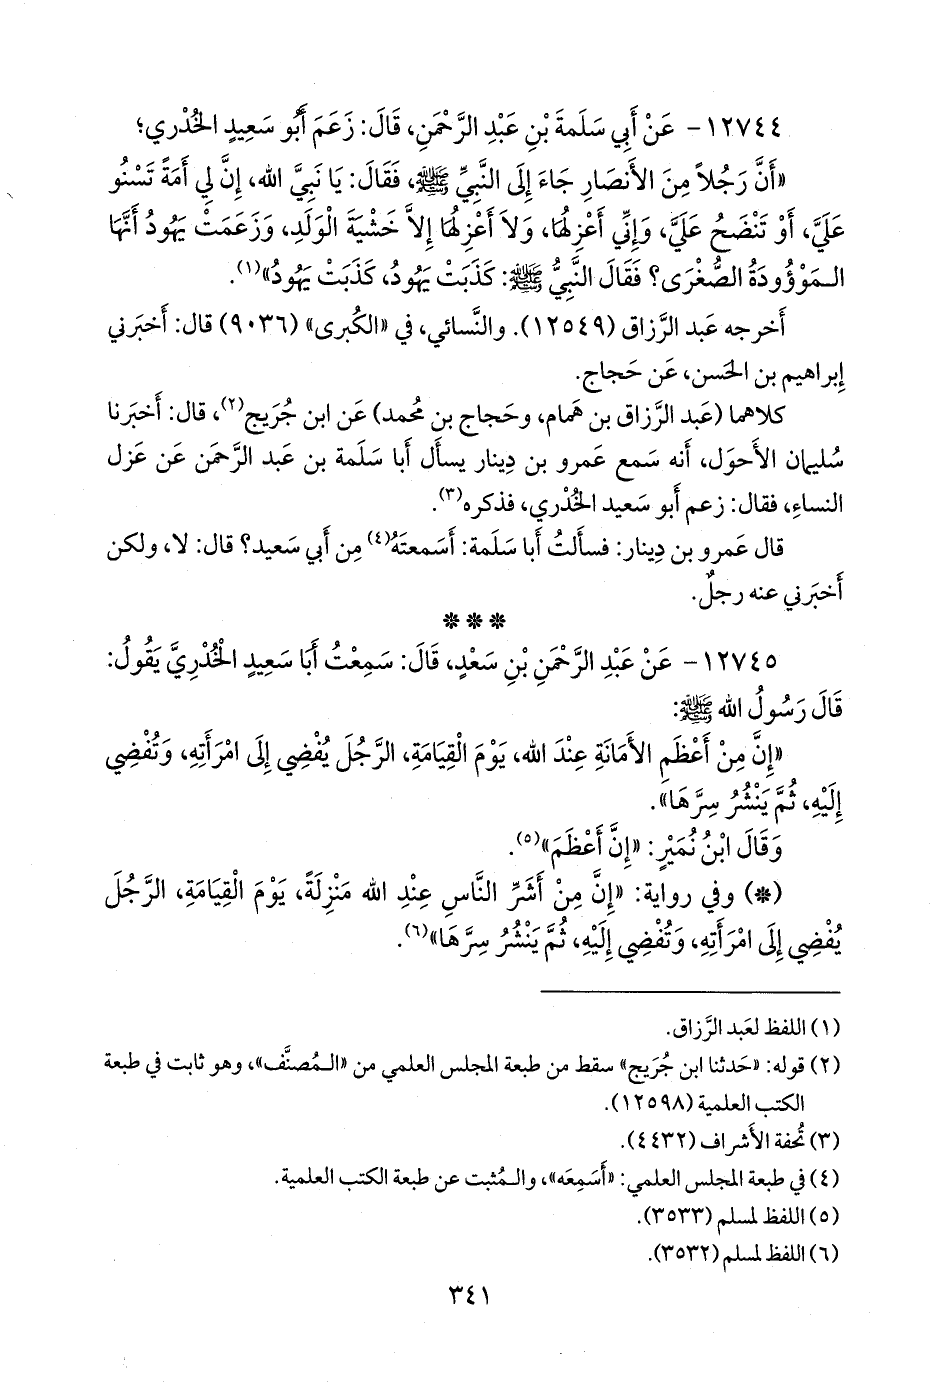 ١٢٧٤٤- عَنْ أَبِي سَلَمةَ بْنِ عَبْدِ الرَّحْمَنِ، قَالَ: زَعَمَ أَبُو سَعِيدٍ الخُدْرِي؛
«أَنَّ رَجُلاً مِنَ الأَنصَارِ جَاءَ إِلَى النَّبِيِّ ﷺ، فَقَالَ: يَا نَبِيَّ الله، إِنَّ لِي أَمَةً تَسْنُو
عَلَيَّ، أَوْ تَنْضَحُ عَلَيَّ، وَإِنِّي أَعْزِلُهَا، وَلاَ أَعْزِلُهَا إِلاَّ خَشْيَةَ الْوَلَدِ، وَزَعَمَتْ يَهُودُ أَنَّهَا
الـمَوْؤُودَةُ الصُّغْرَى؟ فَقَالَ النَّبِيُّ ﷺ: كَذَبَتْ يَهُودُ، كَذَبَتْ يَهُودُ»(١).
أَخرجه عَبد الرَّزاق (١٢٥٤٩). والنَّسائي، في «الكُبرى» (٩٠٣٦) قال: أَخبَرني
إِبراهيم بن الحَسن، عَن حَجاج.
كلاهما (عَبد الرَّزاق بن هَمام، وحَجاج بن مُحمد) عَن ابن جُرَيج(٢)، قال: أَخبَرنا
سُليمان الأَحوَل، أَنه سَمع عَمرو بن دِينار يسأَل أَبا سَلَمة بن عَبد الرَّحمَن عَن عَزل
النساءِ، فقال: زعم أَبو سَعيد الخُدْري، فذكره(٣).
قال عَمرو بن دِينار: فسأَلتُ أَبا سَلَمة: أَسَمعتَهُ(٤) مِن أَبي سَعيد؟ قال: لا، ولكن
أَخبَرني عنه رجلٌ.
***
١٢٧٤٥- عَنْ عَبْدِ الرَّحْمَنِ بْنِ سَعْدٍ، قَالَ: سَمِعْتُ أَبَا سَعِيدٍ الْخُدْرِيَّ يَقُولُ:
قَالَ رَسُولُ الله ﷺ:
«إِنَّ مِنْ أَعْظَمِ الأَمَانَةِ عِنْدَ الله، يَوْمَ الْقِيَامَةِ، الرَّجُلَ يُفْضِي إِلَى امْرَأَتِهِ، وَتُفْضِي
إِلَيْهِ، ثُمَّ يَنْشُرُ سِرَّهَا».
وَقَالَ ابْنُ نُمَيْرٍ: «إِنَّ أَعْظَمَ»(٥).
(*) وفي رواية: «إِنَّ مِنْ أَشَرِّ النَّاسِ عِنْدِ الله مَنْزِلَةً، يَوْمَ الْقِيَامَةِ، الرَّجُلَ
يُفْضِي إِلَى امْرَأَتِهِ، وَتُفْضِي إِلَيْهِ، ثُمَّ يَنْشُرُ سِرَّهَا»(٦).
(١) اللفظ لعَبد الرَّزاق.
(٢) قوله: «حَدثنا ابن جُرَيج» سقط من طبعة المجلس العلمي من «الـمُصنَّف»، وهو ثابت في طبعة
الكتب العلمية (١٢٥٩٨).
(٣) تُحفة الأَشراف (٤٤٣٢).
(٤) في طبعة المجلس العلمي: «أَسَمِعَه»، والـمُثبت عن طبعة الكتب العلمية.
(٥) اللفظ لمسلم (٣٥٣٣).
(٦) اللفظ لمسلم (٣٥٣٢).
٣٤١